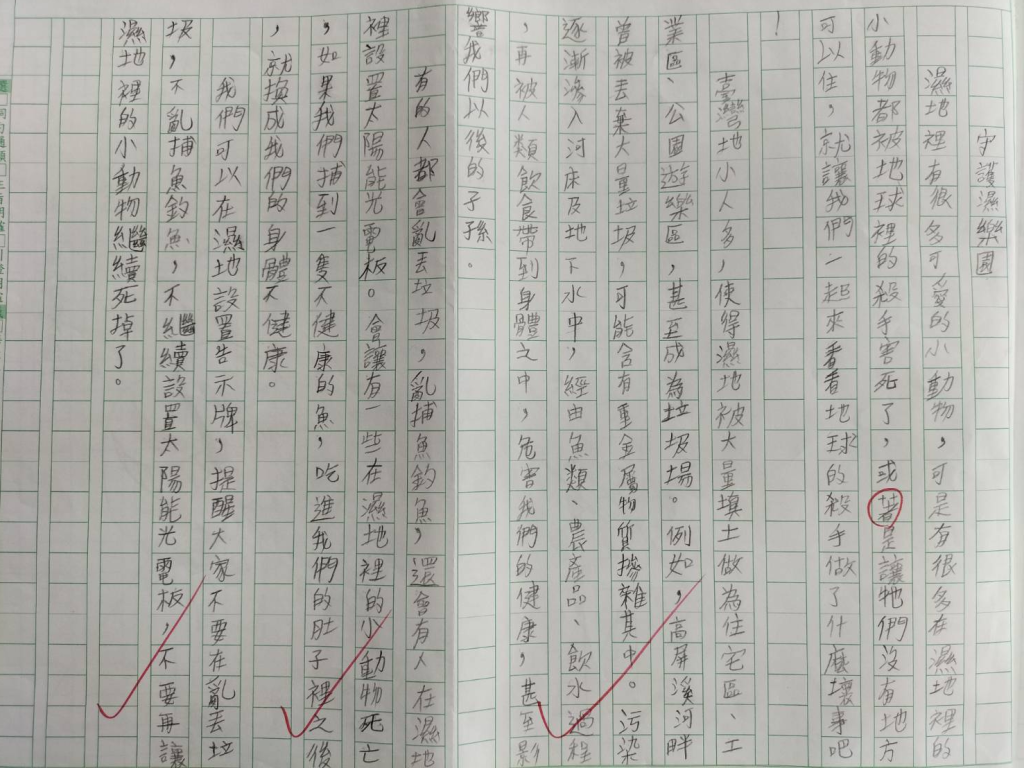 守護濕樂園
濕地裡有很多可愛的小動物，可是有很多在濕地裡的
小動物都被地球裡的殺手害死了，或著是讓牠們沒有地方
可以住，就讓我們一起來看看地球的殺手做了什麼壞事吧
！
臺灣地小人多，使得濕地被大量填土做為住宅區、工
業區、公園遊樂區，甚至成為垃圾場。例如，高屏溪河畔
曾被丟棄大量垃圾，可能含有重金屬物質摻雜其中。污染
逐漸滲入河床及地下水中，經由魚類、農產品、飲水過程
，再被人類飲食帶到身體之中，危害我們的健康，甚至影
響我們以後的子孫。
有的人都會亂丟垃圾，亂捕魚釣魚，還會有人在濕地
裡設置太陽能光電板。會讓有一些在濕地裡的小動物死亡
，如果我們捕到一隻不健康的魚，吃進我們的肚子裡之後
，就換成我們的身體不健康。
我們可以在濕地設置告示牌，提醒大家不要在亂丟垃
圾，不亂捕魚釣魚，不繼續設置太陽能光電板，不要再讓
濕地裡的小動物繼續死掉了。